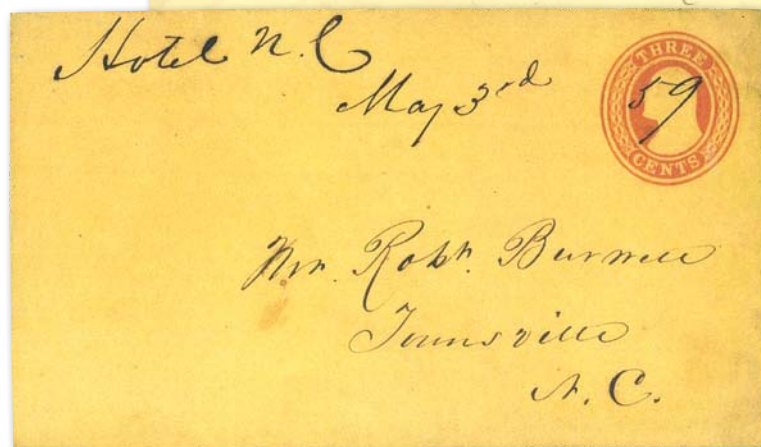 Hotel N.C
May 3rd
THREE
59
CENTS
Mr. Robt. Burwell
Townsville
N.C.